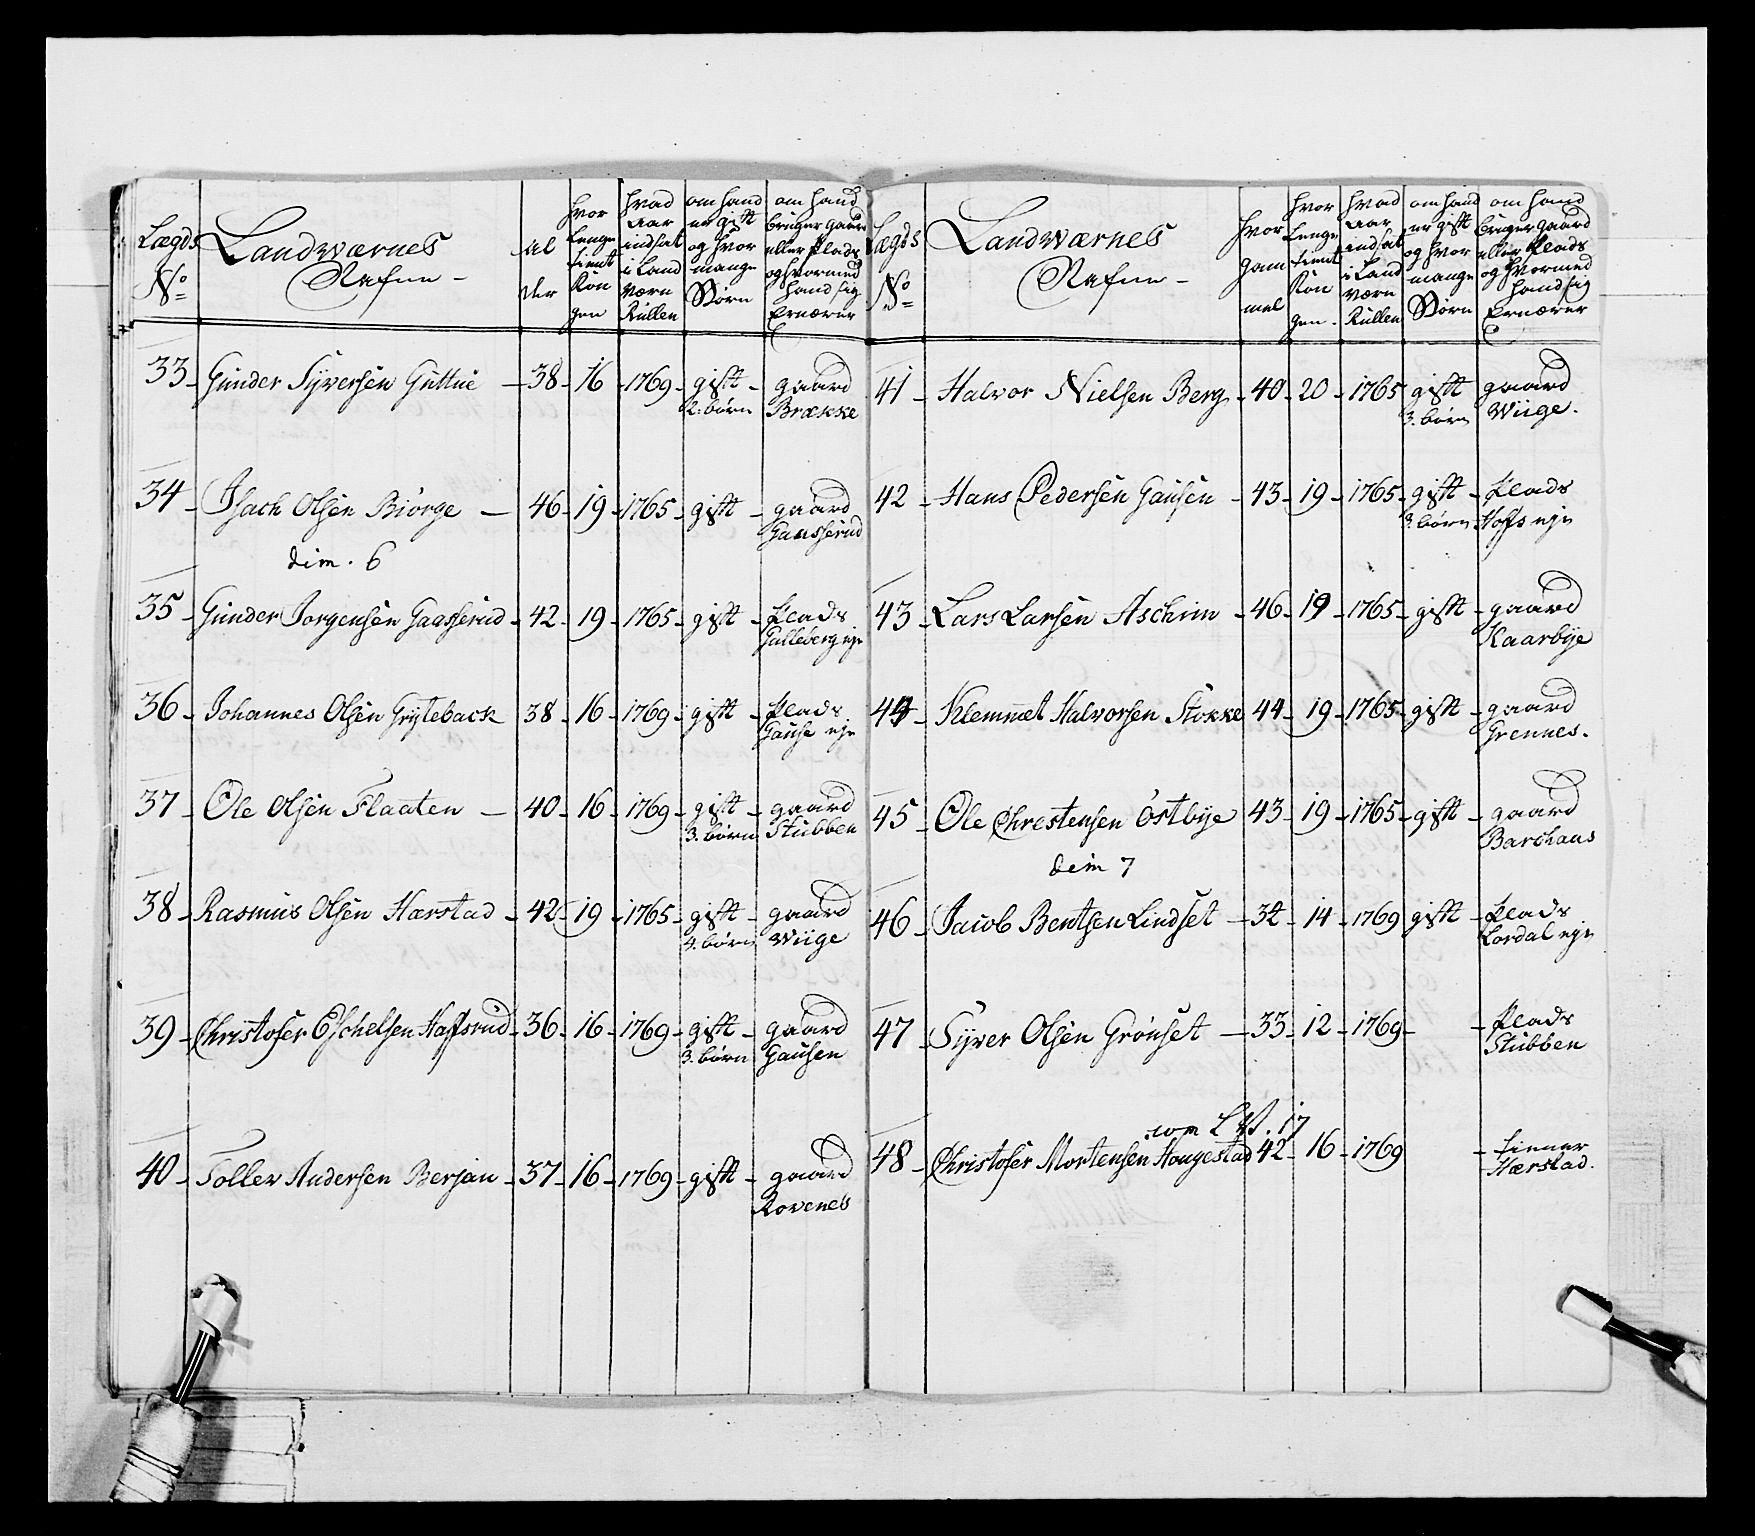 Lægds No Landværnes Nafne - Al der hvor lenge tient Kon gen hvad Aar indsat i Land værn Rullen om hand er gift og hvor mange Børn om hand bruger gaard eller Plads og hvormed hand sig Ernærer
33 - Gunder Syversen Guttue - 38 - 16 - 1769 - gift - gaard
2. børn Brække
34 - Isach Olsen Biörge - 46 - 19 - 1765 - gift - gaard
Gaasserud
dim. 6
35 - Gunder Jorgensen Gaasserud - 42 - 19 - 1765 - gift - Plads
Gulleberg eje
36 - Johannes Olsen Gryteback 38 - 16 - 1769 - gift - Plads
Gause eje
37 - Ole Olsen Flaaten - 40 - 16 - 1769 - gift - gaard
3. børn Stubben
38 - Rasmus Olsen Hærstad - 42 - 19 - 1765 - gift - gaard
4. børn Wiige
39 - Christofer Eschelsen Haffsrud - 36 - 16 - 1769 - gift - gaard
3. børn Gausen
40 - Toller Andersen Berjan - 37 - 16 - 1769 - gift - gaard
Rovenes
Lægds No Landværnes Nafne - hvor gam mel hvor lenge tient Kon gen. hvad Aar indsat i Land værn Rullen om hand er gift og hvor mange Børn om hand bruger gaard eller Plads og hvormed hand sig Ernærer
41 - Halvor Nielsen Berg - 40 - 20 - 1765 gift gaard
3. børn Wiige.
42 - Hans Pedersen Gausen - 43 - 19 - 1765 - gift - Plads
3. børn Hoffs eje
43 - Lars Larsen Aschim - 46 - 19 - 1765 - gift - gaard
Kaarbye
44 - Klemmet Halvorsen Stokke 44 - 19 - 1765 - gift - gaard
Grennes.
45 - Ole Chrestensen Östbye 43 - 19 - 1765 - gift - gaard
Barchaas
deim 7
46 - Jacob Bentsen Lindset - 34 - 14 - 1769 gift - Plads
Lordal eje
47 - Syver Olsen Grönset - 33 - 12 - 1769 - - Plads
Stubben
com L W. 17
48 - Christofer Mortensen Hougestad 42 - 16 - 1769 - tienner
Hærstad.